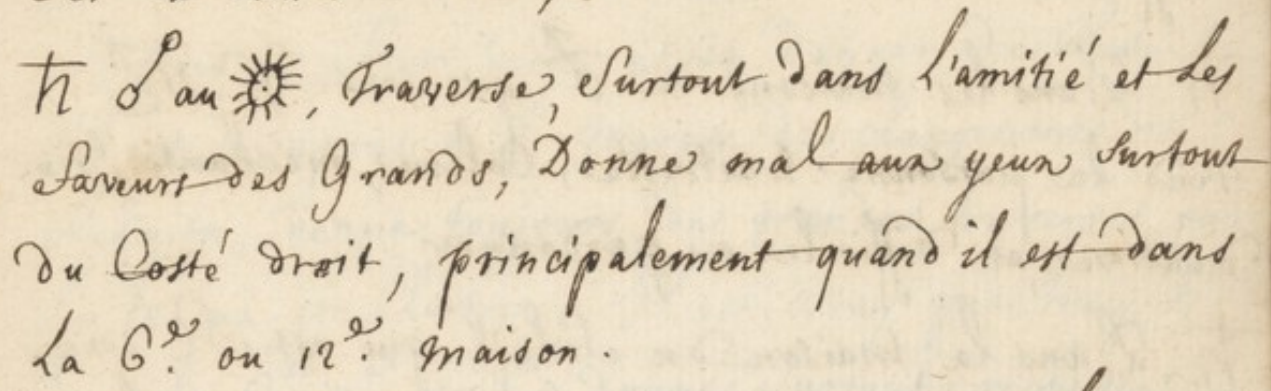 ♄ ☌ au ☉, Traverse, Surtout dans L'amitié et Les
Faveurs des Grands, Donne mal aux yeux Surtout
du Costé droit, principalement quand il est dans
La 6.e ou 12.e maison.